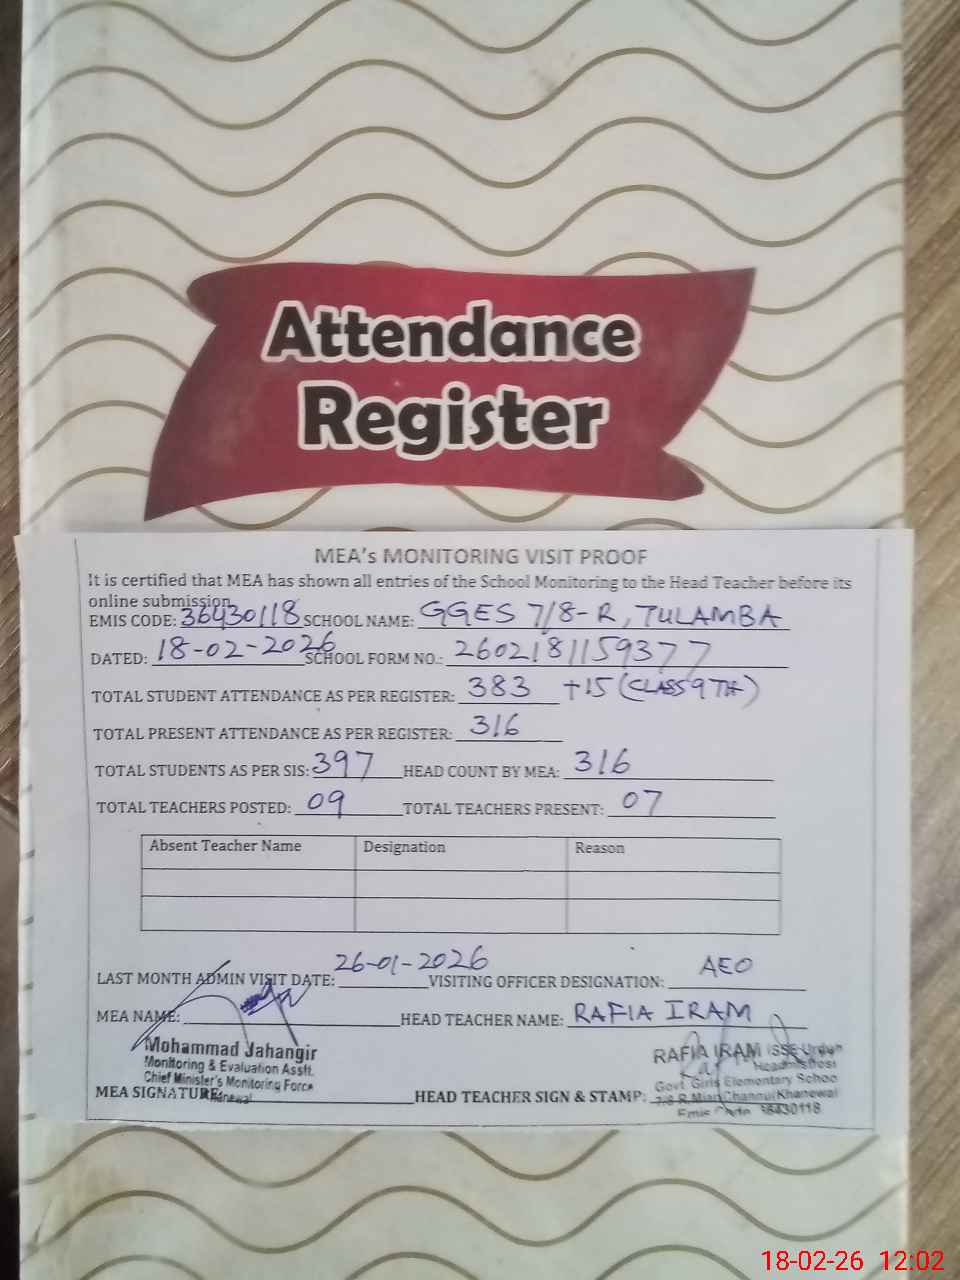 Attendance
Register
MEA's MONITORING VISIT PROOF
It is certified that MEA has shown all entries of the School Monitoring to the Head Teacher before its
online submission
EMIS CODE: 36430118 SCHOOL NAME: GGES 7/8-R, TULAMBA
DATED: 18-02-2026 SCHOOL FORM NO.: 2602181159377
TOTAL STUDENT ATTENDANCE AS PER REGISTER: 383 +15 (CLASS 9TH)
TOTAL PRESENT ATTENDANCE AS PER REGISTER: 316
TOTAL STUDENTS AS PER SIS: 397 HEAD COUNT BY MEA: 316
TOTAL TEACHERS POSTED: 09 TOTAL TEACHERS PRESENT: 07
Absent Teacher Name Designation Reason
LAST MONTH ADMIN VISIT DATE: 26-01-2026 VISITING OFFICER DESIGNATION: AEO
MEA NAME: HEAD TEACHER NAME: RAFIA IRAM
Mohammad Jahangir
Monitoring & Evaluation Asstt.
Chief Minister's Monitoring Force
Khanewal
MEA SIGNATURE: HEAD TEACHER SIGN & STAMP:
RAFIA IRAM SSE-Urdu
Headmistress
Govt Girls Elementary School
7/8 R Mian Channu Khanewal
Emis Code 36430118
18-02-26 12:02